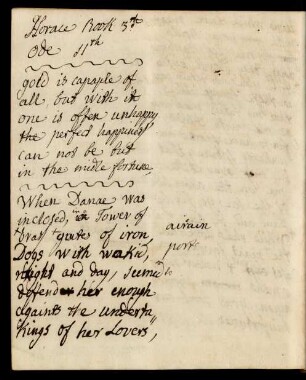 Horace Book 3th
Ode 11th
gold is capaple of
all, but with it
one is offen unhappy
the perfect happiness
can not be but
in the midle fortune,
When Danae was
inclosed, Tower of
bras gates of iron airain
Dogs with port
and day, seemed to
defend her enough
againts the underta
kings of her Lovers,